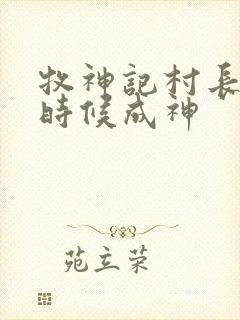 牧神記村長
時候成神
苑立荣